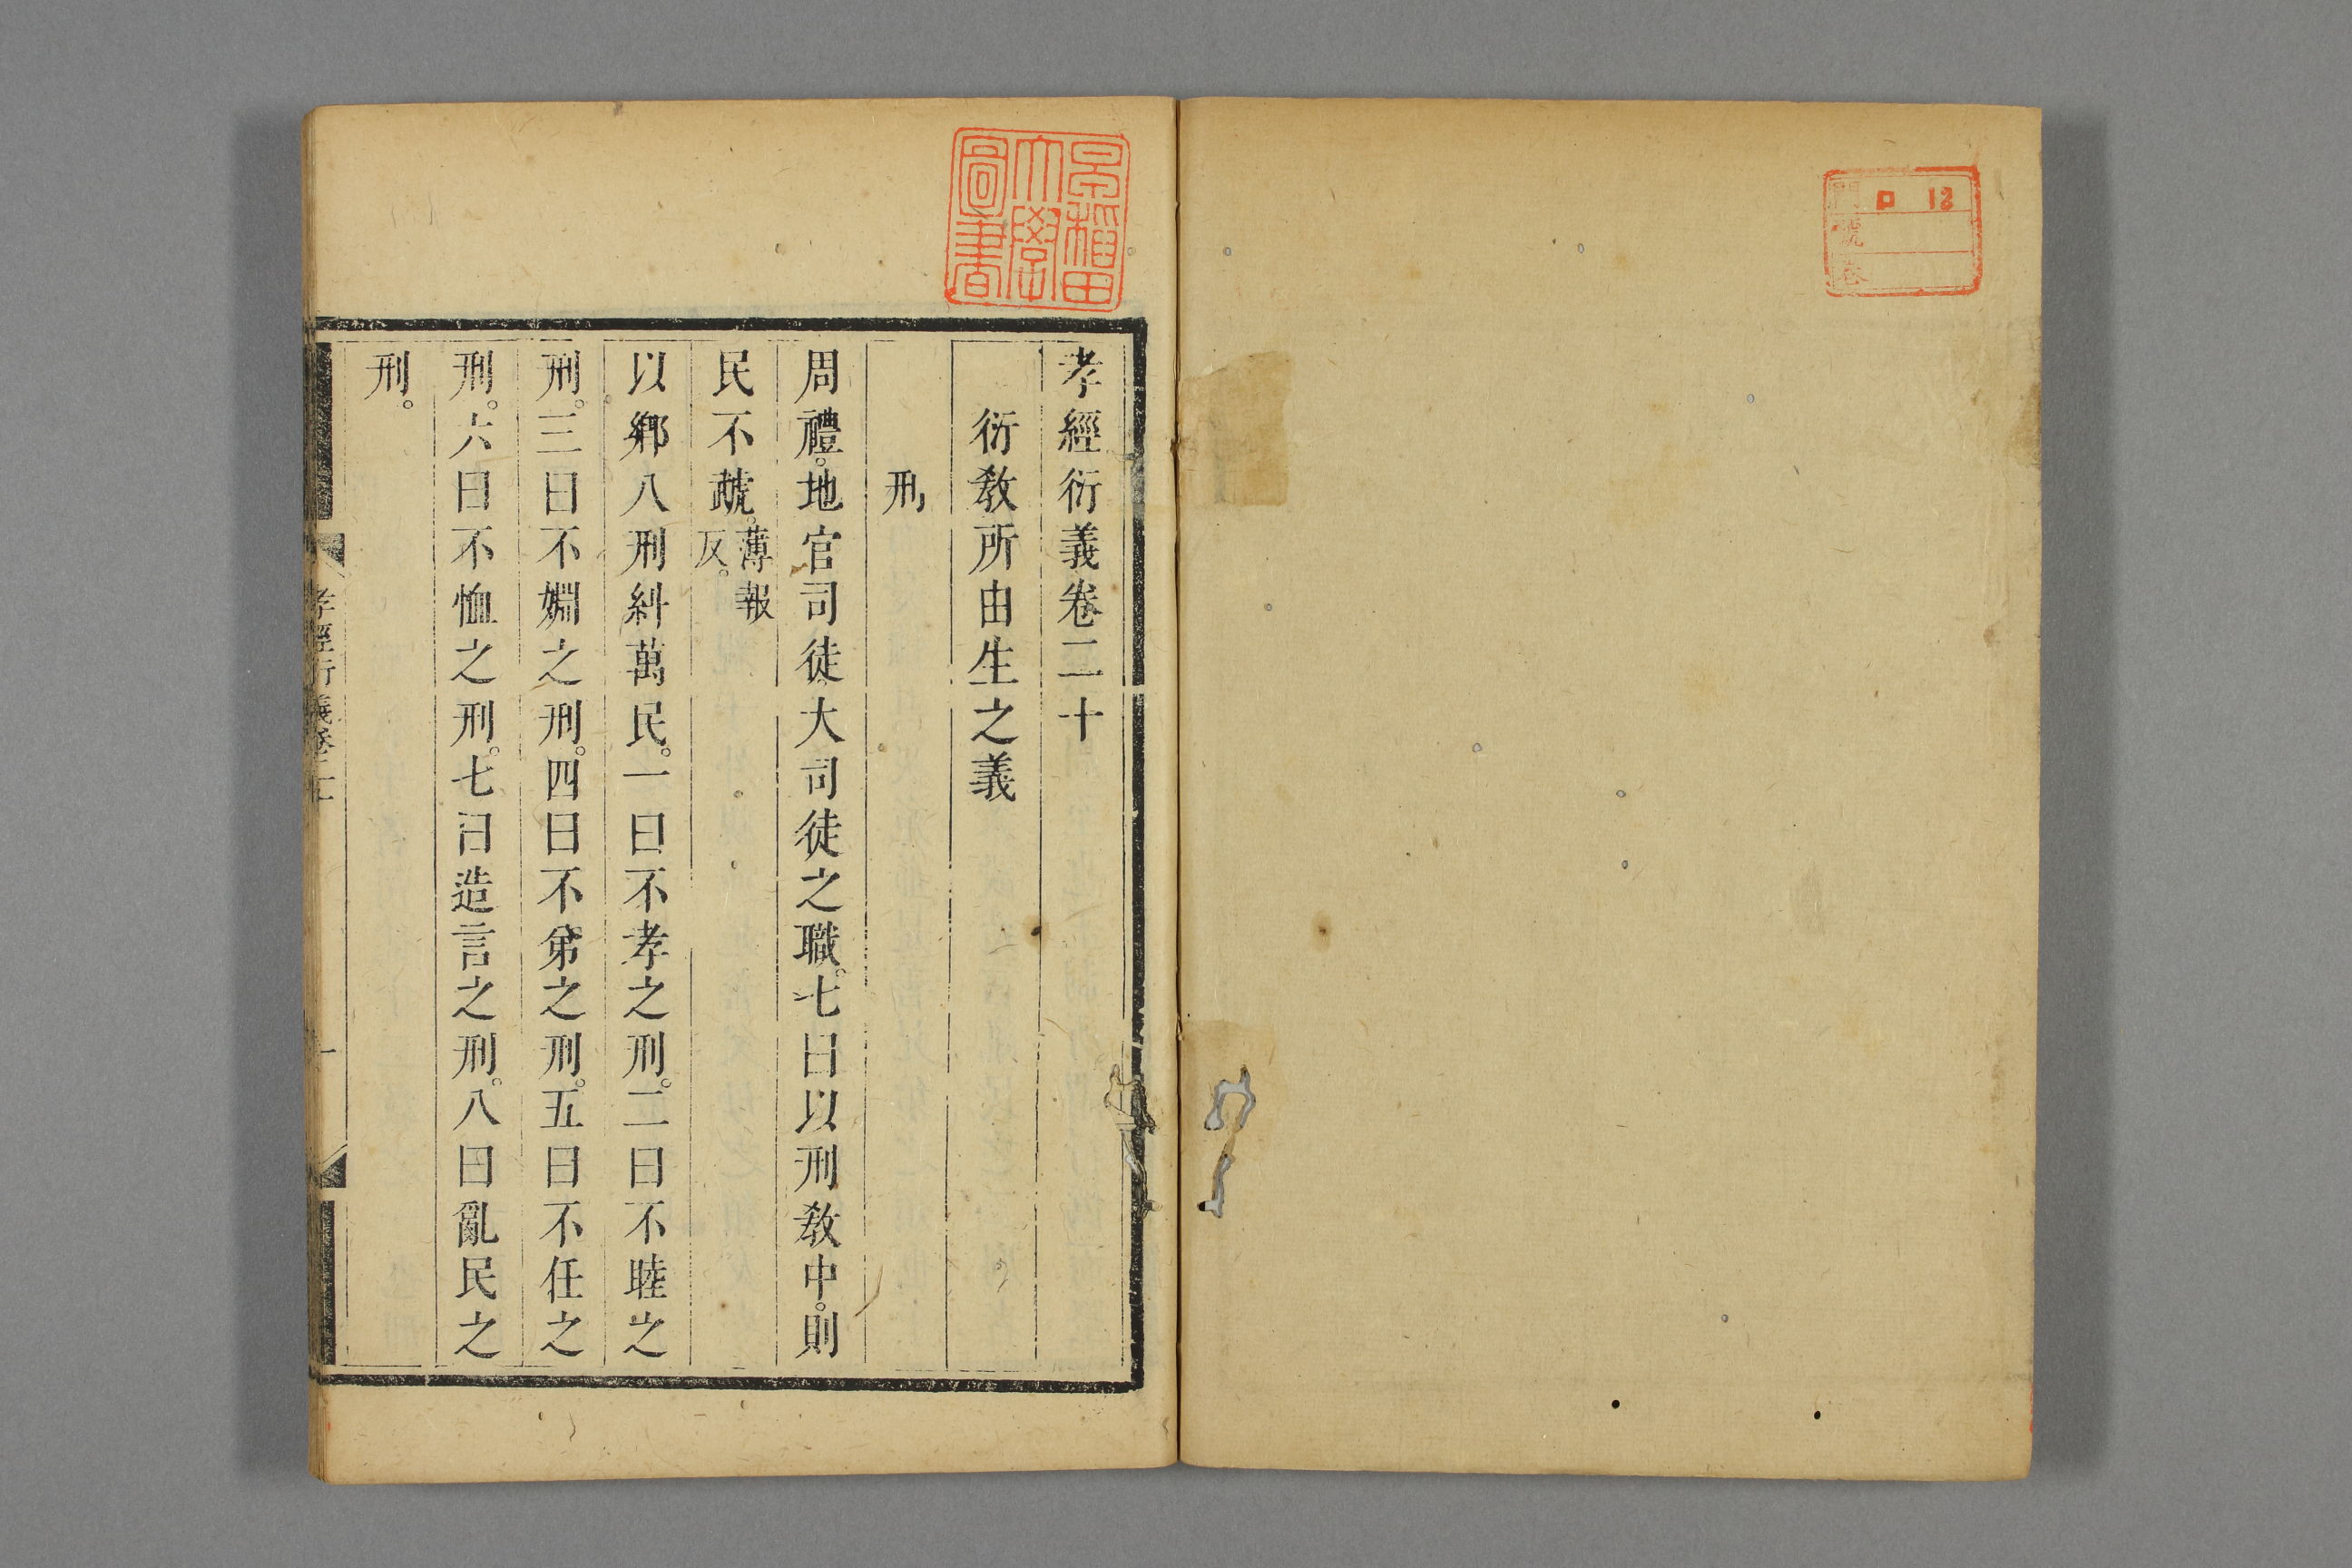 門 ロ 12
號
卷
早稻田
大學
圖書
孝經衍義卷二十
衍敎所由生之義
刑
周禮。地官司徒。大司徒之職。七曰以刑敎中。則
民不虣。薄報
反。
以鄉八刑糾萬民。一曰不孝之刑。二曰不睦之
刑。三曰不婣之刑。四曰不弟之刑。五曰不任之
刑。六曰不恤之刑。七曰造言之刑。八曰亂民之
刑。
孝經衍義卷二十
一